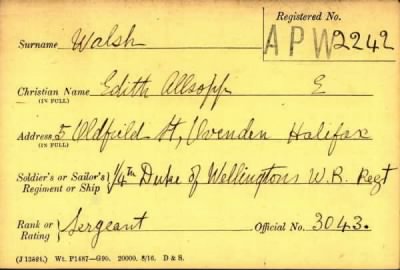 Registered No.
Surname Walsh APW 2242
Christian Name Edith Allsopp E
(IN FULL)
Address 5 Oldfield St, Ovenden Halifax
(IN FULL)
Soldier's or Sailor's
Regiment or Ship } 1/4th Duke of Wellingtons W.R. Regt
Rank or
Rating } Sergeant Official No. 3043.
(J 13581.) Wt. P1487—G90. 20000. 8/16. D & S.